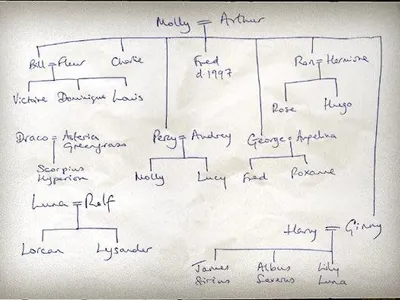 Molly = Arthur
Bill = Fleur Charlie Fred Ron = Hermione
d. 1997
Victoire Dominique Louis Rose Hugo
Draco = Asteria Percy = Audrey George = Angelina
Greengrass
Scorpius Molly Lucy Fred Roxanne
Hyperion
Luna = Rolf
Harry = Ginny
Lorcan Lysander
James Albus Lily
Sirius Severus Luna